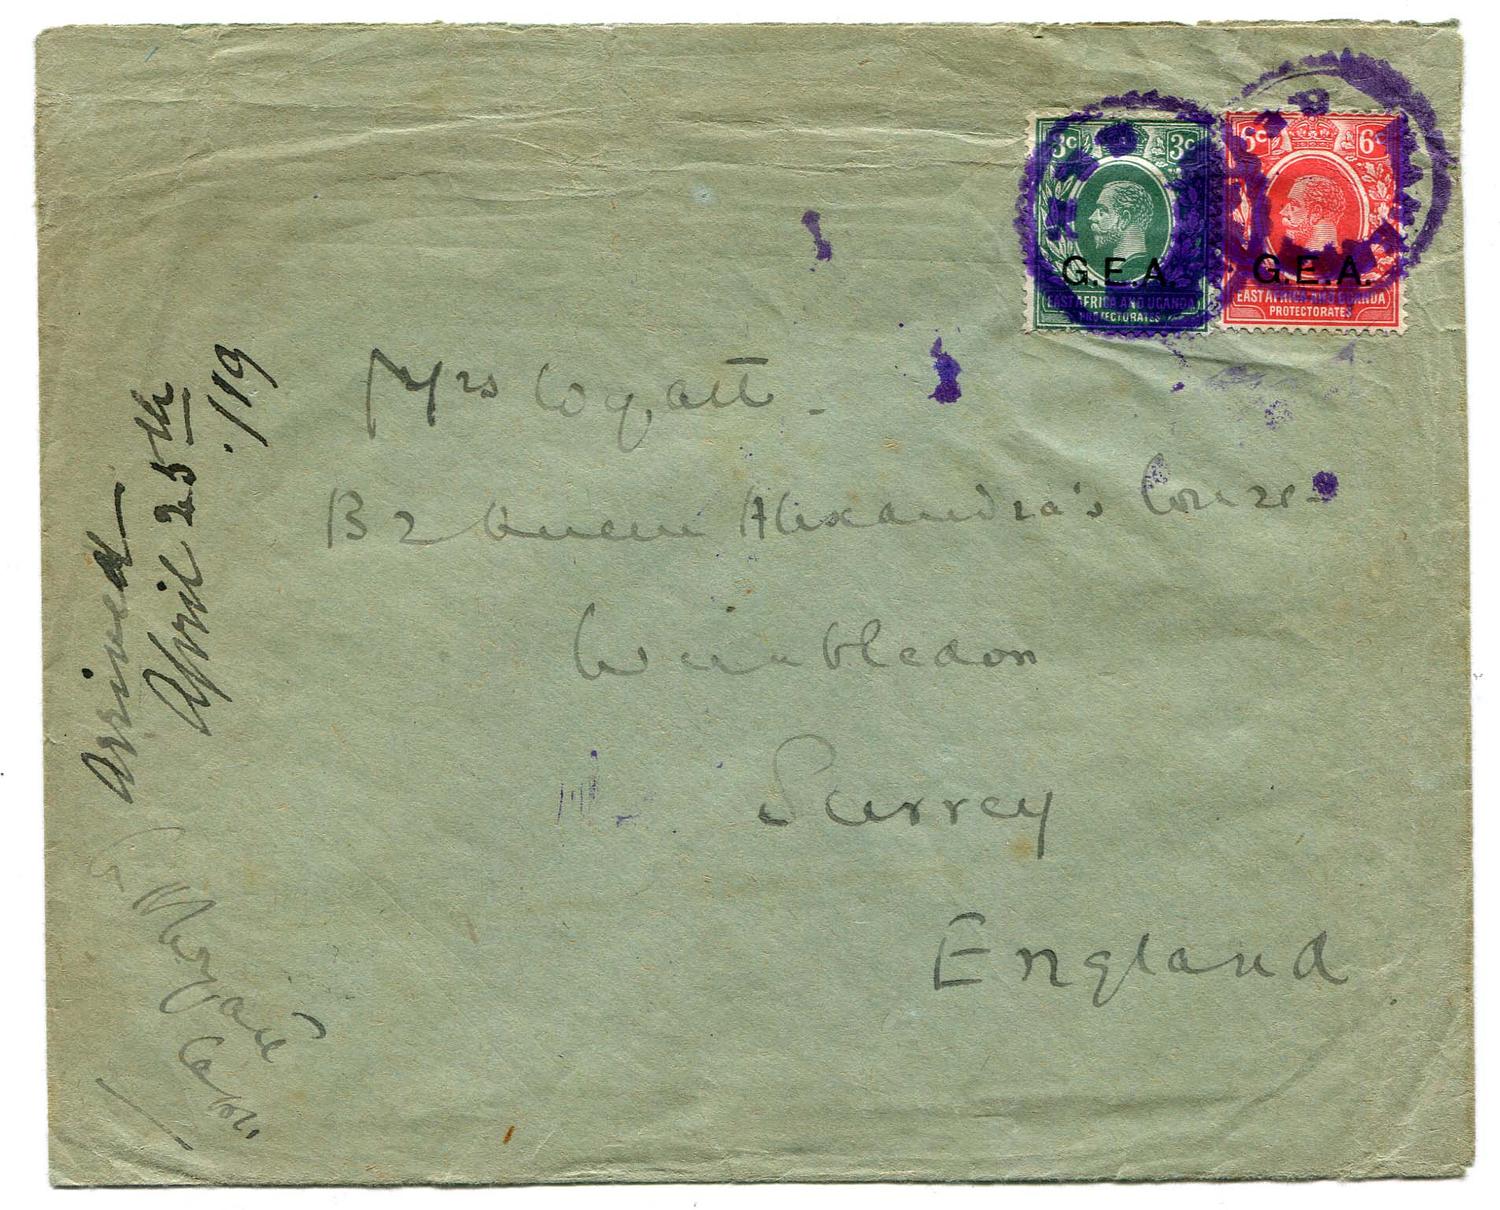 3c 3c
G.E.A.
EAST AFRICA AND UGANDA
PROTECTORATES
6c 6c
G.E.A.
EAST AFRICA AND UGANDA
PROTECTORATES
Mrs Wyatt -
B2 Queen Alexandra's Court
Wimbledon
Surrey
England
Arrived
April 25th
'/19